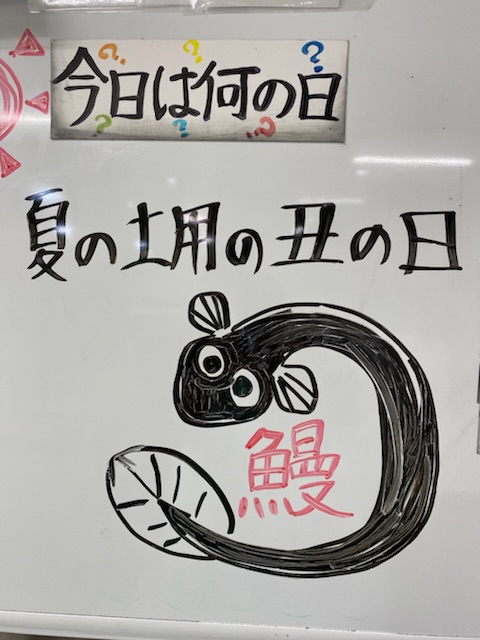 今日は何の日
夏の土用の丑の日
鰻